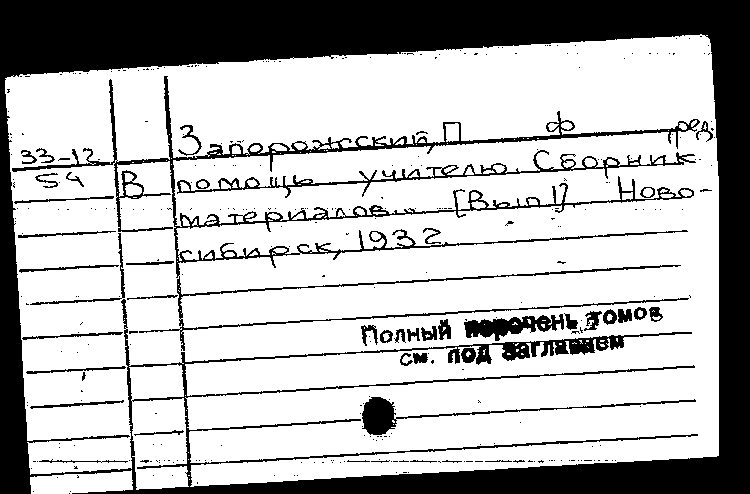 Запорожский, П Ф ред.
33-12
54 В помощь учителю. Сборник
материалов... [Вып 1]. Ново-
сибирск, 1932.
Полный перечень томов
см. под заглавием